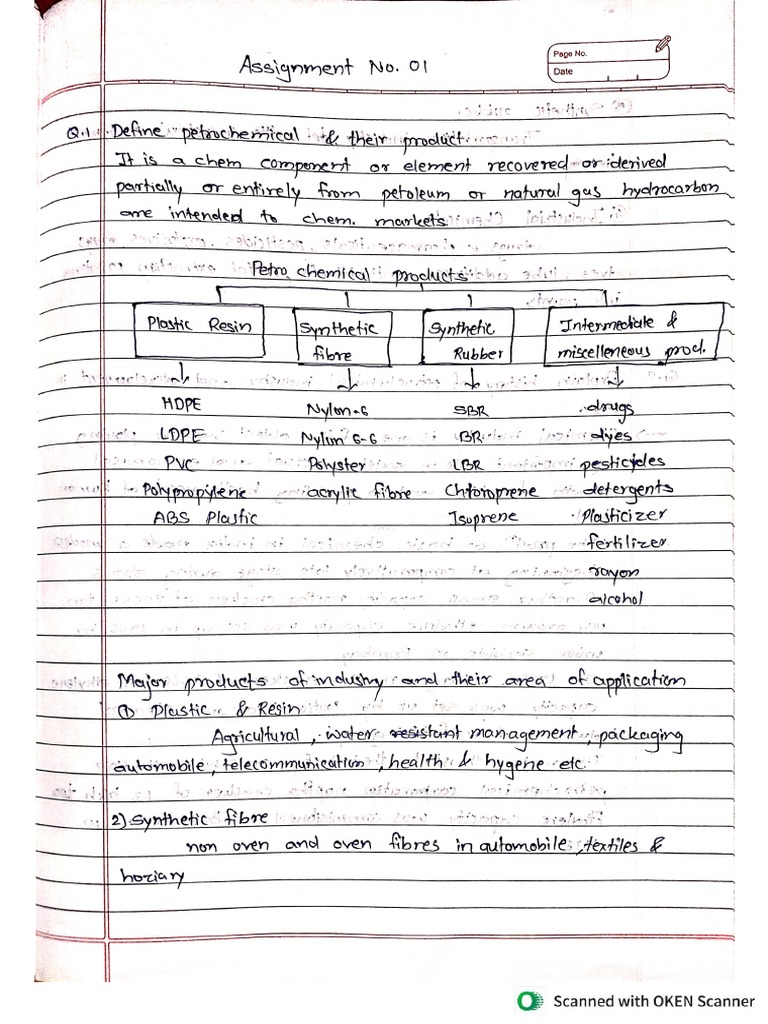 Assignment No. 01
Page No.
Date
Q.1 Define petrochemical & their product.
It is a chem component or element recovered or derived
partially or entirely from petoleum or natural gas hydrocarbon
are intended to chem. markets.
Petrochemical products
Plastic Resin Synthetic fibre Synthetic Rubber Intermediale & miscelleneous prod.
HDPE Nylon-6 SBR drugs
LDPE Nylon 6-6 BR dyes
PVC Polyster LBR pesticydes
Polypropylene acrylic fibre Chloroprene detergents
ABS Plastic Isoprene Plasticizer
fertilizer
rayon
alcohol
Major products of industry and their area of application
① Plastic & Resin
Agricultural, water resistant management, packaging
automobile, telecommunication, health & hygene etc.
2) Synthetic fibre
non oven and oven fibres in automobile, textiles &
hoziary
Scanned with OKEN Scanner